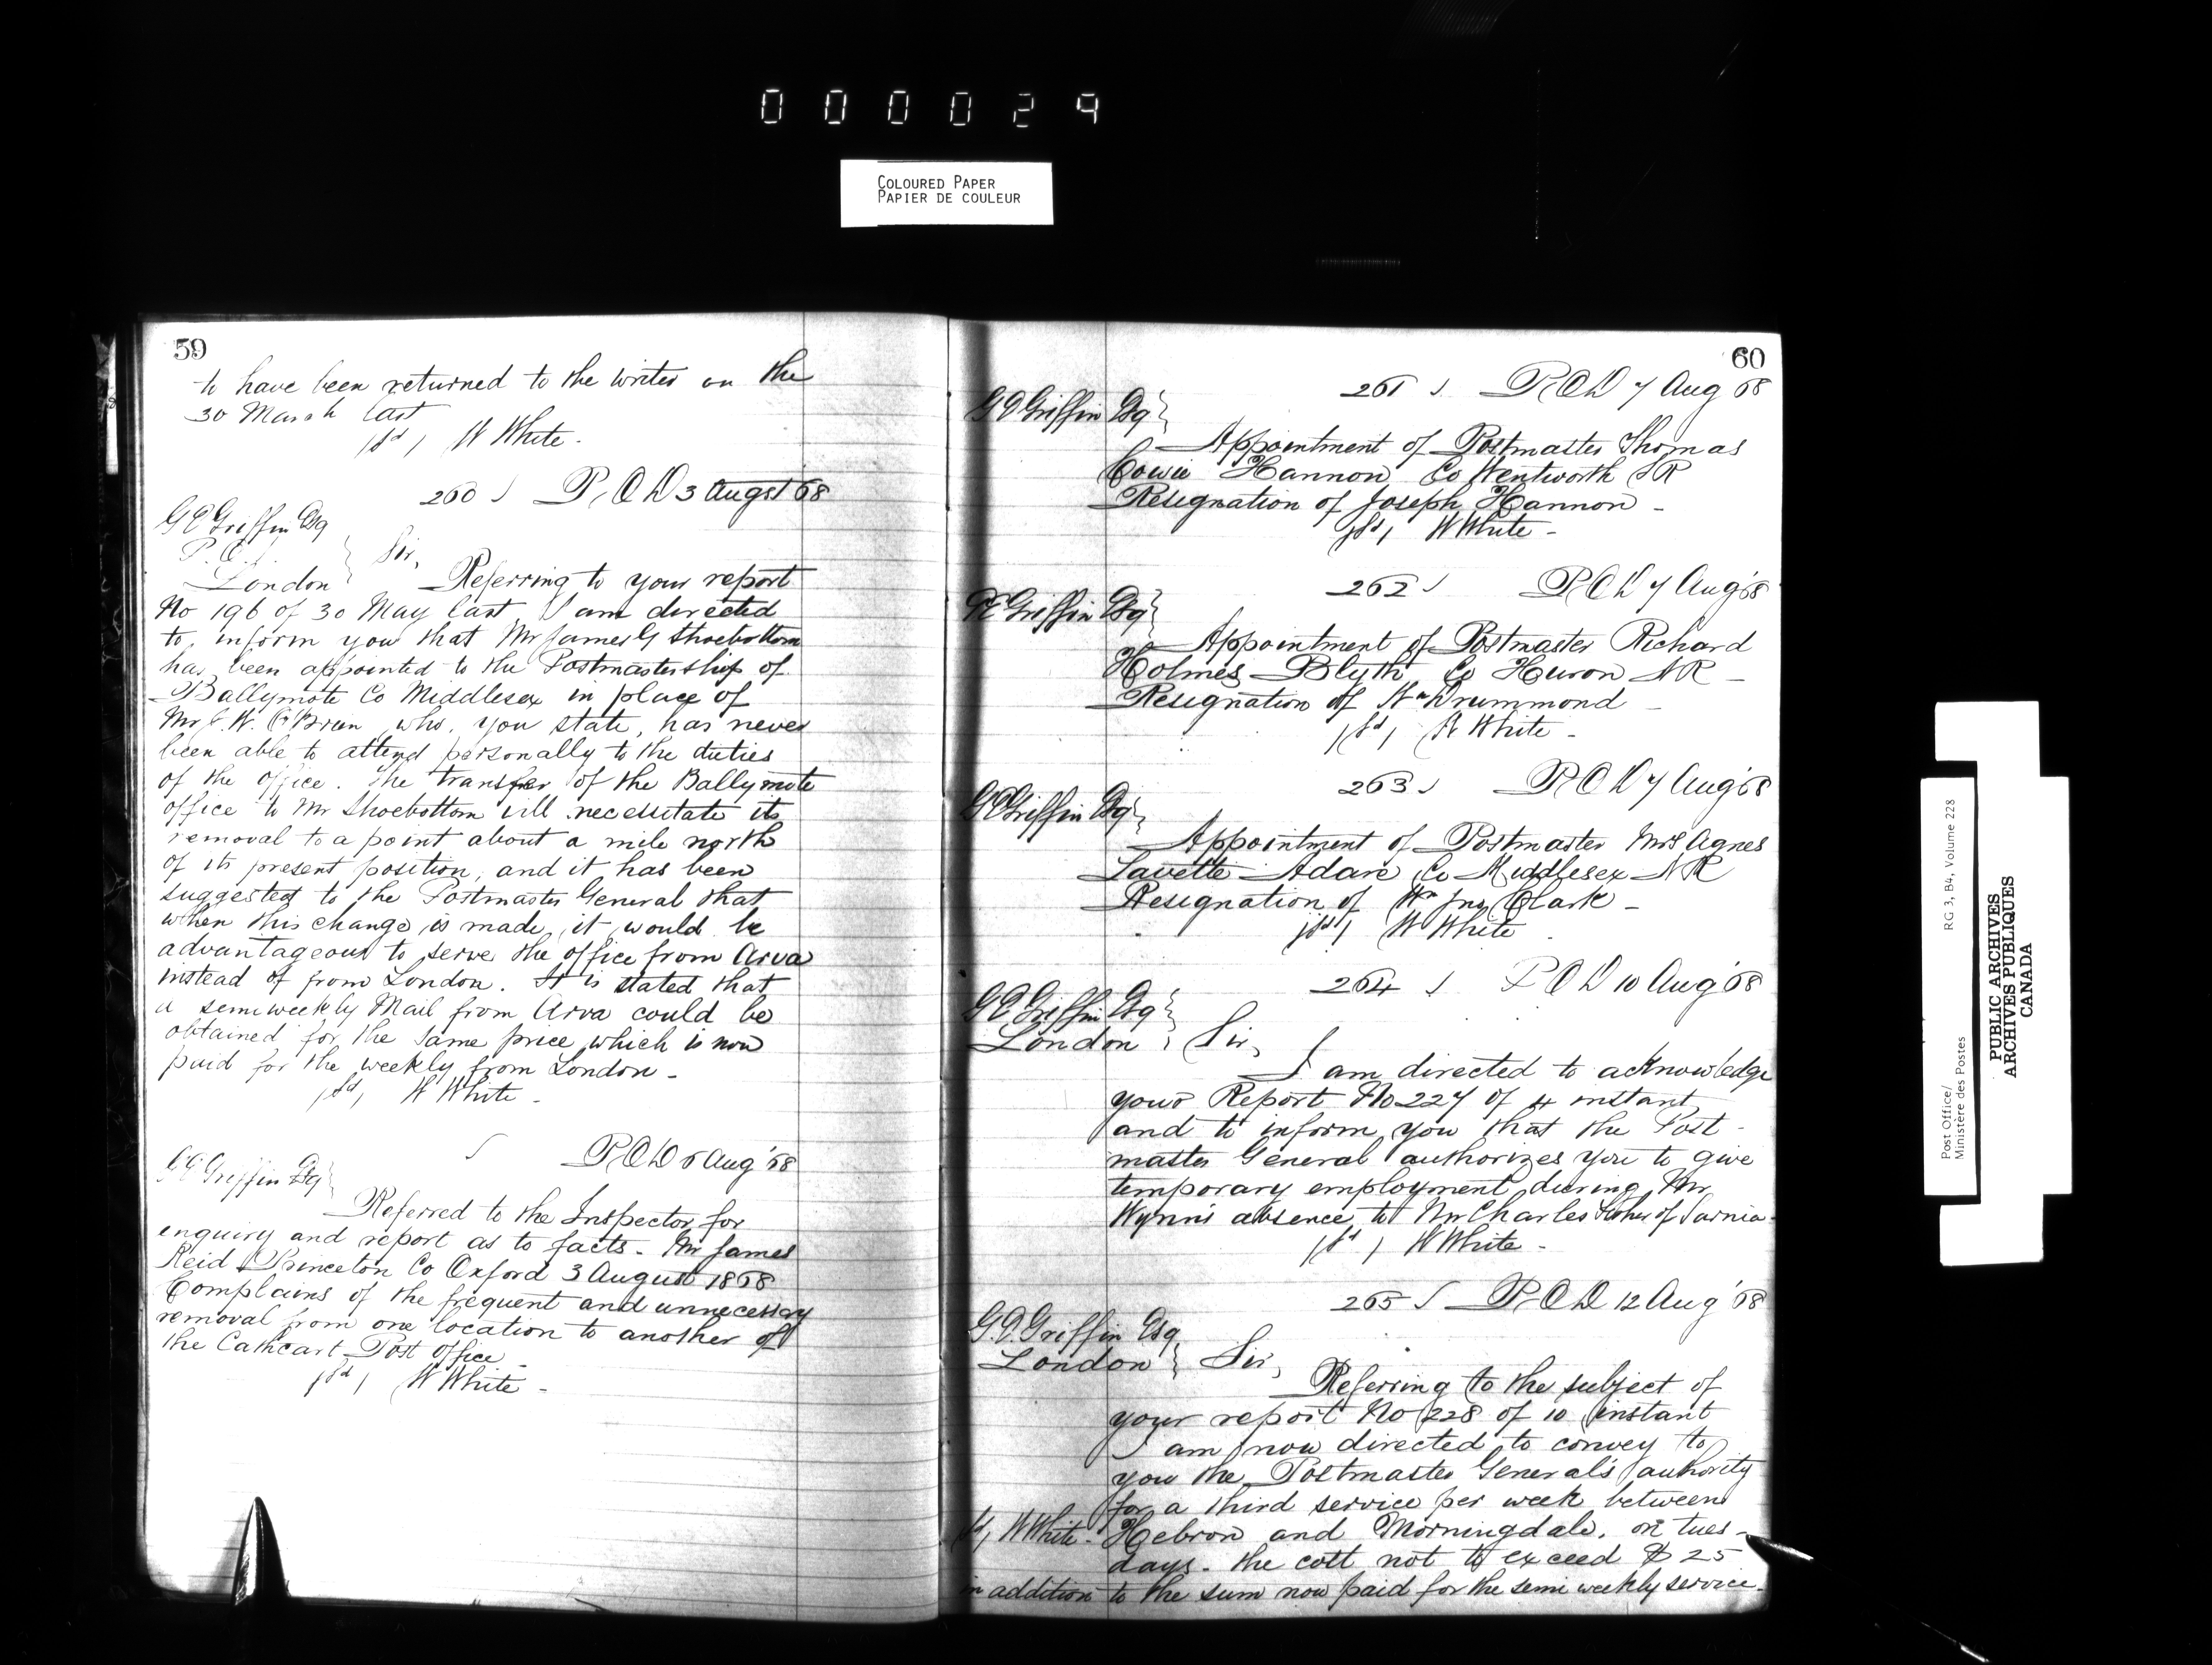 000029
COLOURED PAPER
PAPIER DE COULEUR
59
to have been returned to the writer on the
30 March last
/sd/ W White -
260 P.O.D 3 Augst 68
G E Griffin Esq
P.O.I.
London
Sir,
Referring to your report
No 196 of 30 May last I am directed
to inform you that Mr James G Shoebottom
has been appointed to the Postmastership of
Ballymote Co Middlesex in place of
Mr W. O'Brien who, you state, has never
been able to attend personally to the duties
of the office. The transfer of the Ballymote
office to Mr Shoebottom will necessitate its
removal to a point about a mile north
of its present position, and it has been
suggested to the Postmaster General that
when this change is made, it would be
advantageous to serve the office from Arva
instead of from London. It is stated that
a semiweekly Mail from Arva could be
obtained for the same price which is now
paid for the weekly from London -
/sd/ W White -
P.O.D 6 Aug '68
G E Griffin Esq
Referred to the Inspector for
enquiry and report as to facts - Mr James
Reid Princeton Co Oxford 3 August 1868
Complains of the frequent and unnecessary
removal from one location to another of
the Cathcart Post Office -
/sd/ W White -
60
261 P.O.D 7 Aug 68
G E Griffin Esq
Appointment of Postmaster Thomas
Cowie Hannon Co Wentworth SR
Resignation of Joseph Hannon -
/sd/ W White -
262 P.O.D 7 Aug '68
G E Griffin Esq
Appointment of Postmaster Richard
Holmes Blyth Co Huron NR -
Resignation of Wm Drummond -
/sd/ W White -
263 P.O.D 7 Aug '68
G E Griffin Esq
Appointment of Postmaster Mrs Agnes
Lavette Adare Co Middlesex NR
Resignation of Wm Jno Clark -
/sd/ W White
264 P.O.D 10 Aug '68
G E Griffin Esq
London
Sir,
I am directed to acknowledge
your Report No 227 of 4 instant
and to inform you that the Post-
master General authorizes you to give
temporary employment during Mr
Wynn's absence to Mr Charles of Sarnia -
/sd/ W White -
265 P.O.D 12 Aug '68
G.E. Griffin Esq
London
Sir,
Referring to the subject of
your report No 228 of 10 instant
I am now directed to convey to
you the Postmaster General's authority
for a third service per week between
/sd/ W White - Hebron and Morningdale, on tues-
days - the cost not to exceed $25
in addition to the sum now paid for the semi weekly service -
Post Office/
Ministère des Postes
RG 3, B4, Volume 228
PUBLIC ARCHIVES
ARCHIVES PUBLIQUES
CANADA